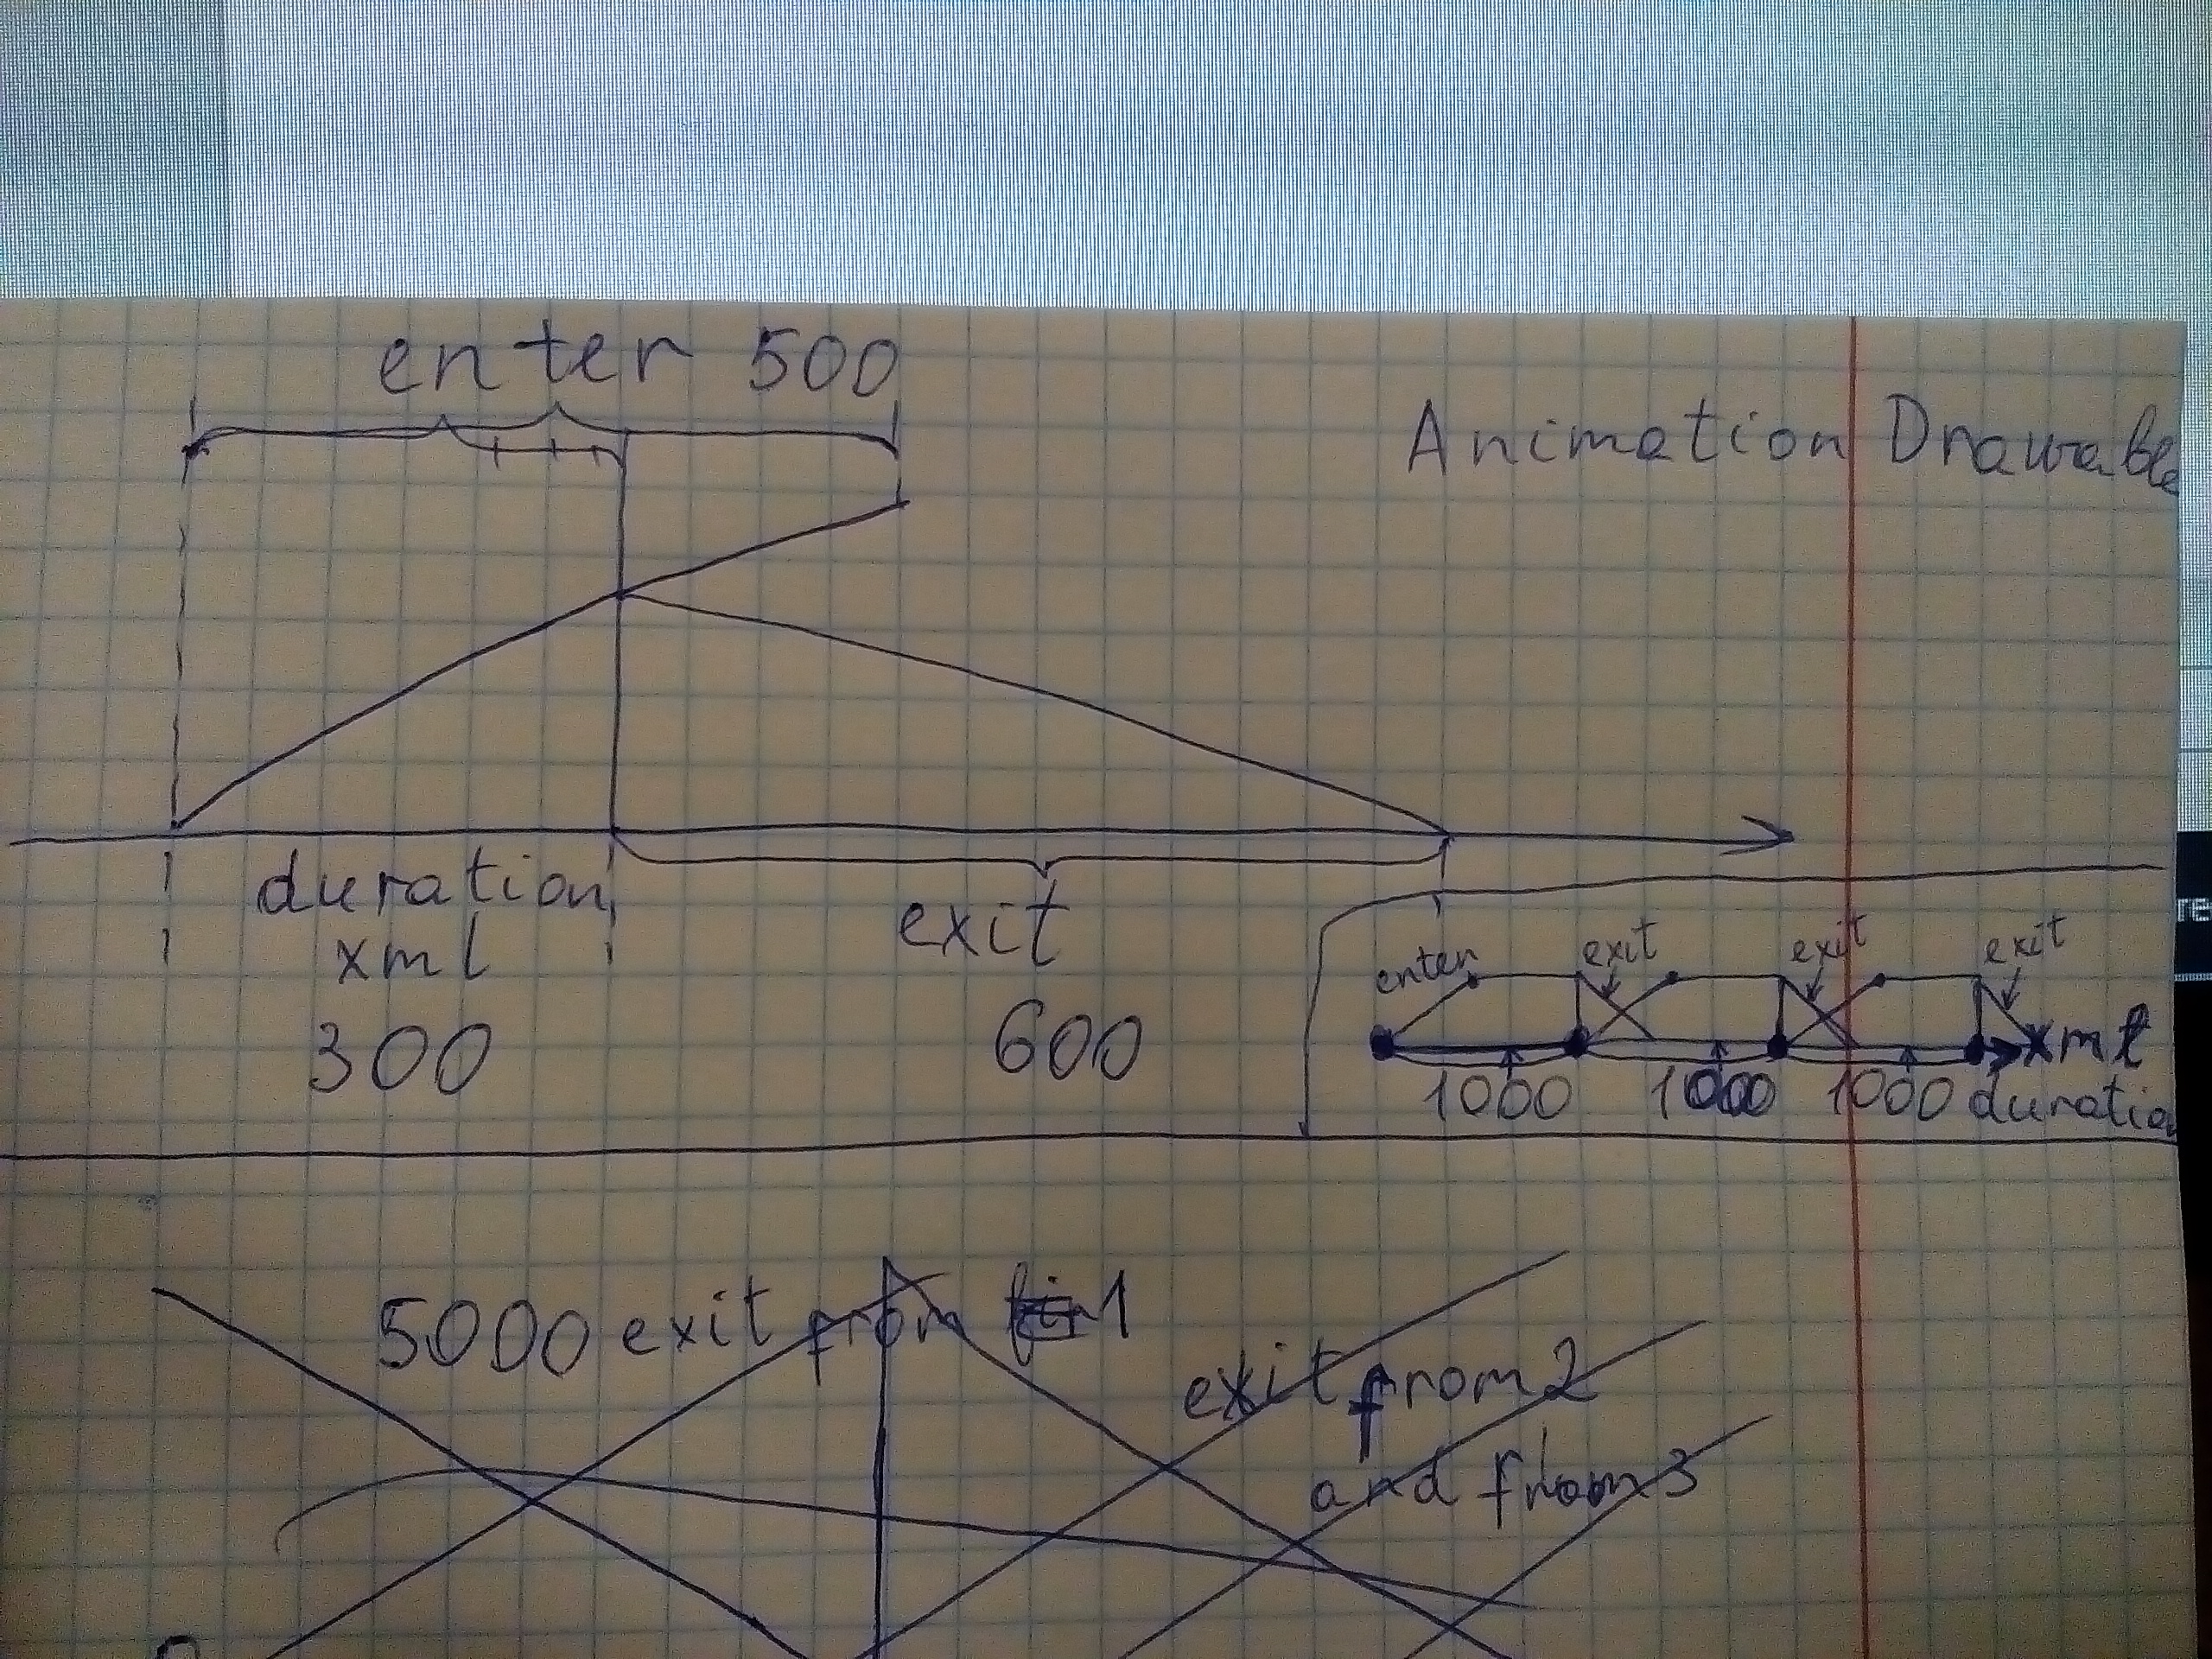 enter 500
Animation Drawable
duration
xml
300
exit
600
enter
exit
exit
exit
xml
1000
1000
1000
duration
5000 exit from 1
exit from 2
and from 3
re